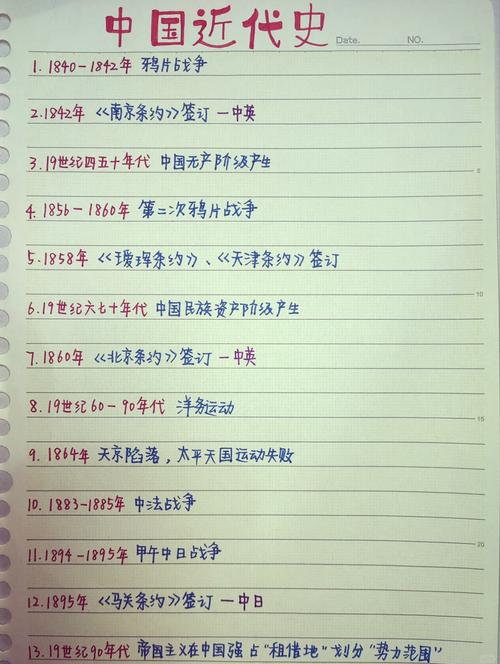 中国近代史 Date. NO.
1. 1840-1842年 鸦片战争
2. 1842年 《南京条约》签订 一中英
3. 19世纪四五十年代 中国无产阶级产生
4. 1856-1860年 第二次鸦片战争
5. 1858年 《瑷珲条约》、《天津条约》签订
6. 19世纪六七十年代 中国民族资产阶级产生
7. 1860年 《北京条约》签订 一中英
8. 19世纪60-90年代 洋务运动
9. 1864年 天京陷落，太平天国运动失败
10. 1883-1885年 中法战争
11. 1894-1895年 甲午中日战争
12. 1895年 《马关条约》签订 一中日
13. 19世纪90年代 帝国主义在中国强占"租借地"划分"势力范围"
5
10
15
20